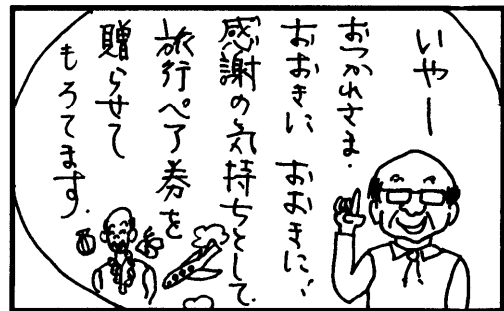 いやー
おつかれさま.
おおきに おおきに!
感謝の気持ちとして.
旅行ペア券を
贈らせて
もろてます.